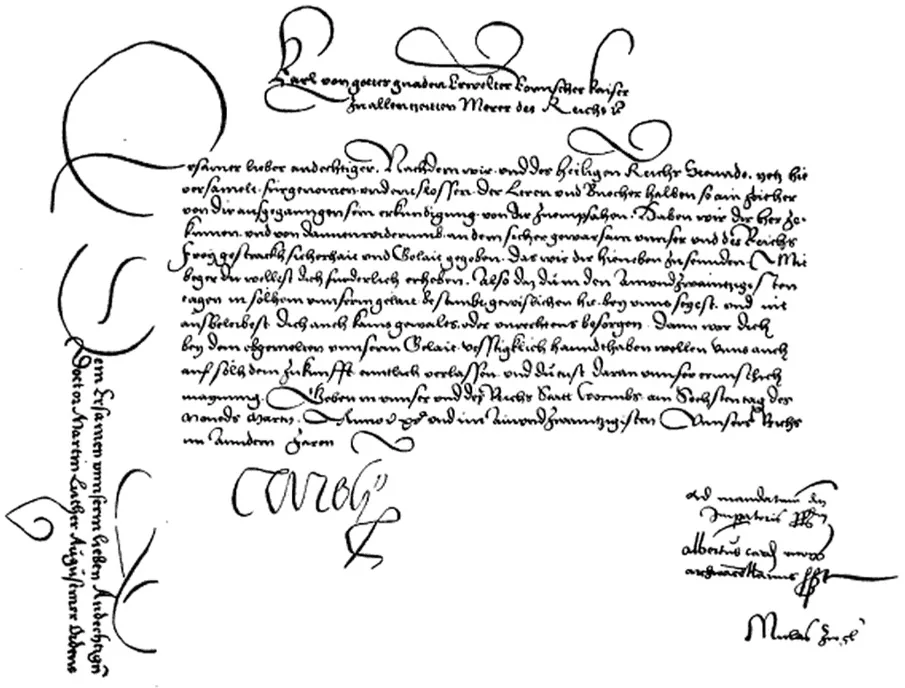 Karl von gottes gnaden Erwelter Romischer kaiser
zu allen zeitten Merer des Reichs
Ersamer lieber andechtiger. Nachdem wir und des heiligen Reichs Stennde. yetz hie
versamelt. fürgenomen und entslossen. der Leren und Buecher halben so ain zeither
von dir ausgeganngen sein erkundigung. von dir zuempfahen. Haben wir dir her ze
komen. und von dannen widerumb. an dein sicher gewarsam unnser und des Reichs
Frey gestrackh sicherhait und Gelait gegeben. das wir dir hieneben zusennden. Mit
beger du wellest dich furderlich erheben. Also daz du in den Ainundzwaintzigisten
tagen in solhem unnserm gelait bestimbt gewislichen hie bey unns seyest. und nit
ausbeleibest. Dich auch kains gewalts. oder unrechtens besorgen. Dann wir dich
bey dem obgemelten unnserm Gelait. vesstigklich hanndthaben wellen. Unns auch
auf solh dein zukunfft enntlich verlassen. und du tust daran unnser ernnstlich
maynung. Geben in unnser und des Reichs Statt Wormbs. am Sechsten tag des
Moneds Marcy. Anno und im Ainundzwaintzigisten Unnsers Reichs
im Anndern Jaren
Carolus
ad mandatum dni
Imperatoris ppm
albertus card
archicancellarius sspt
Niclas
Dem Ersamen unnserm lieben Andechtigen
Doctor Martin Luther Augustiner Ordens